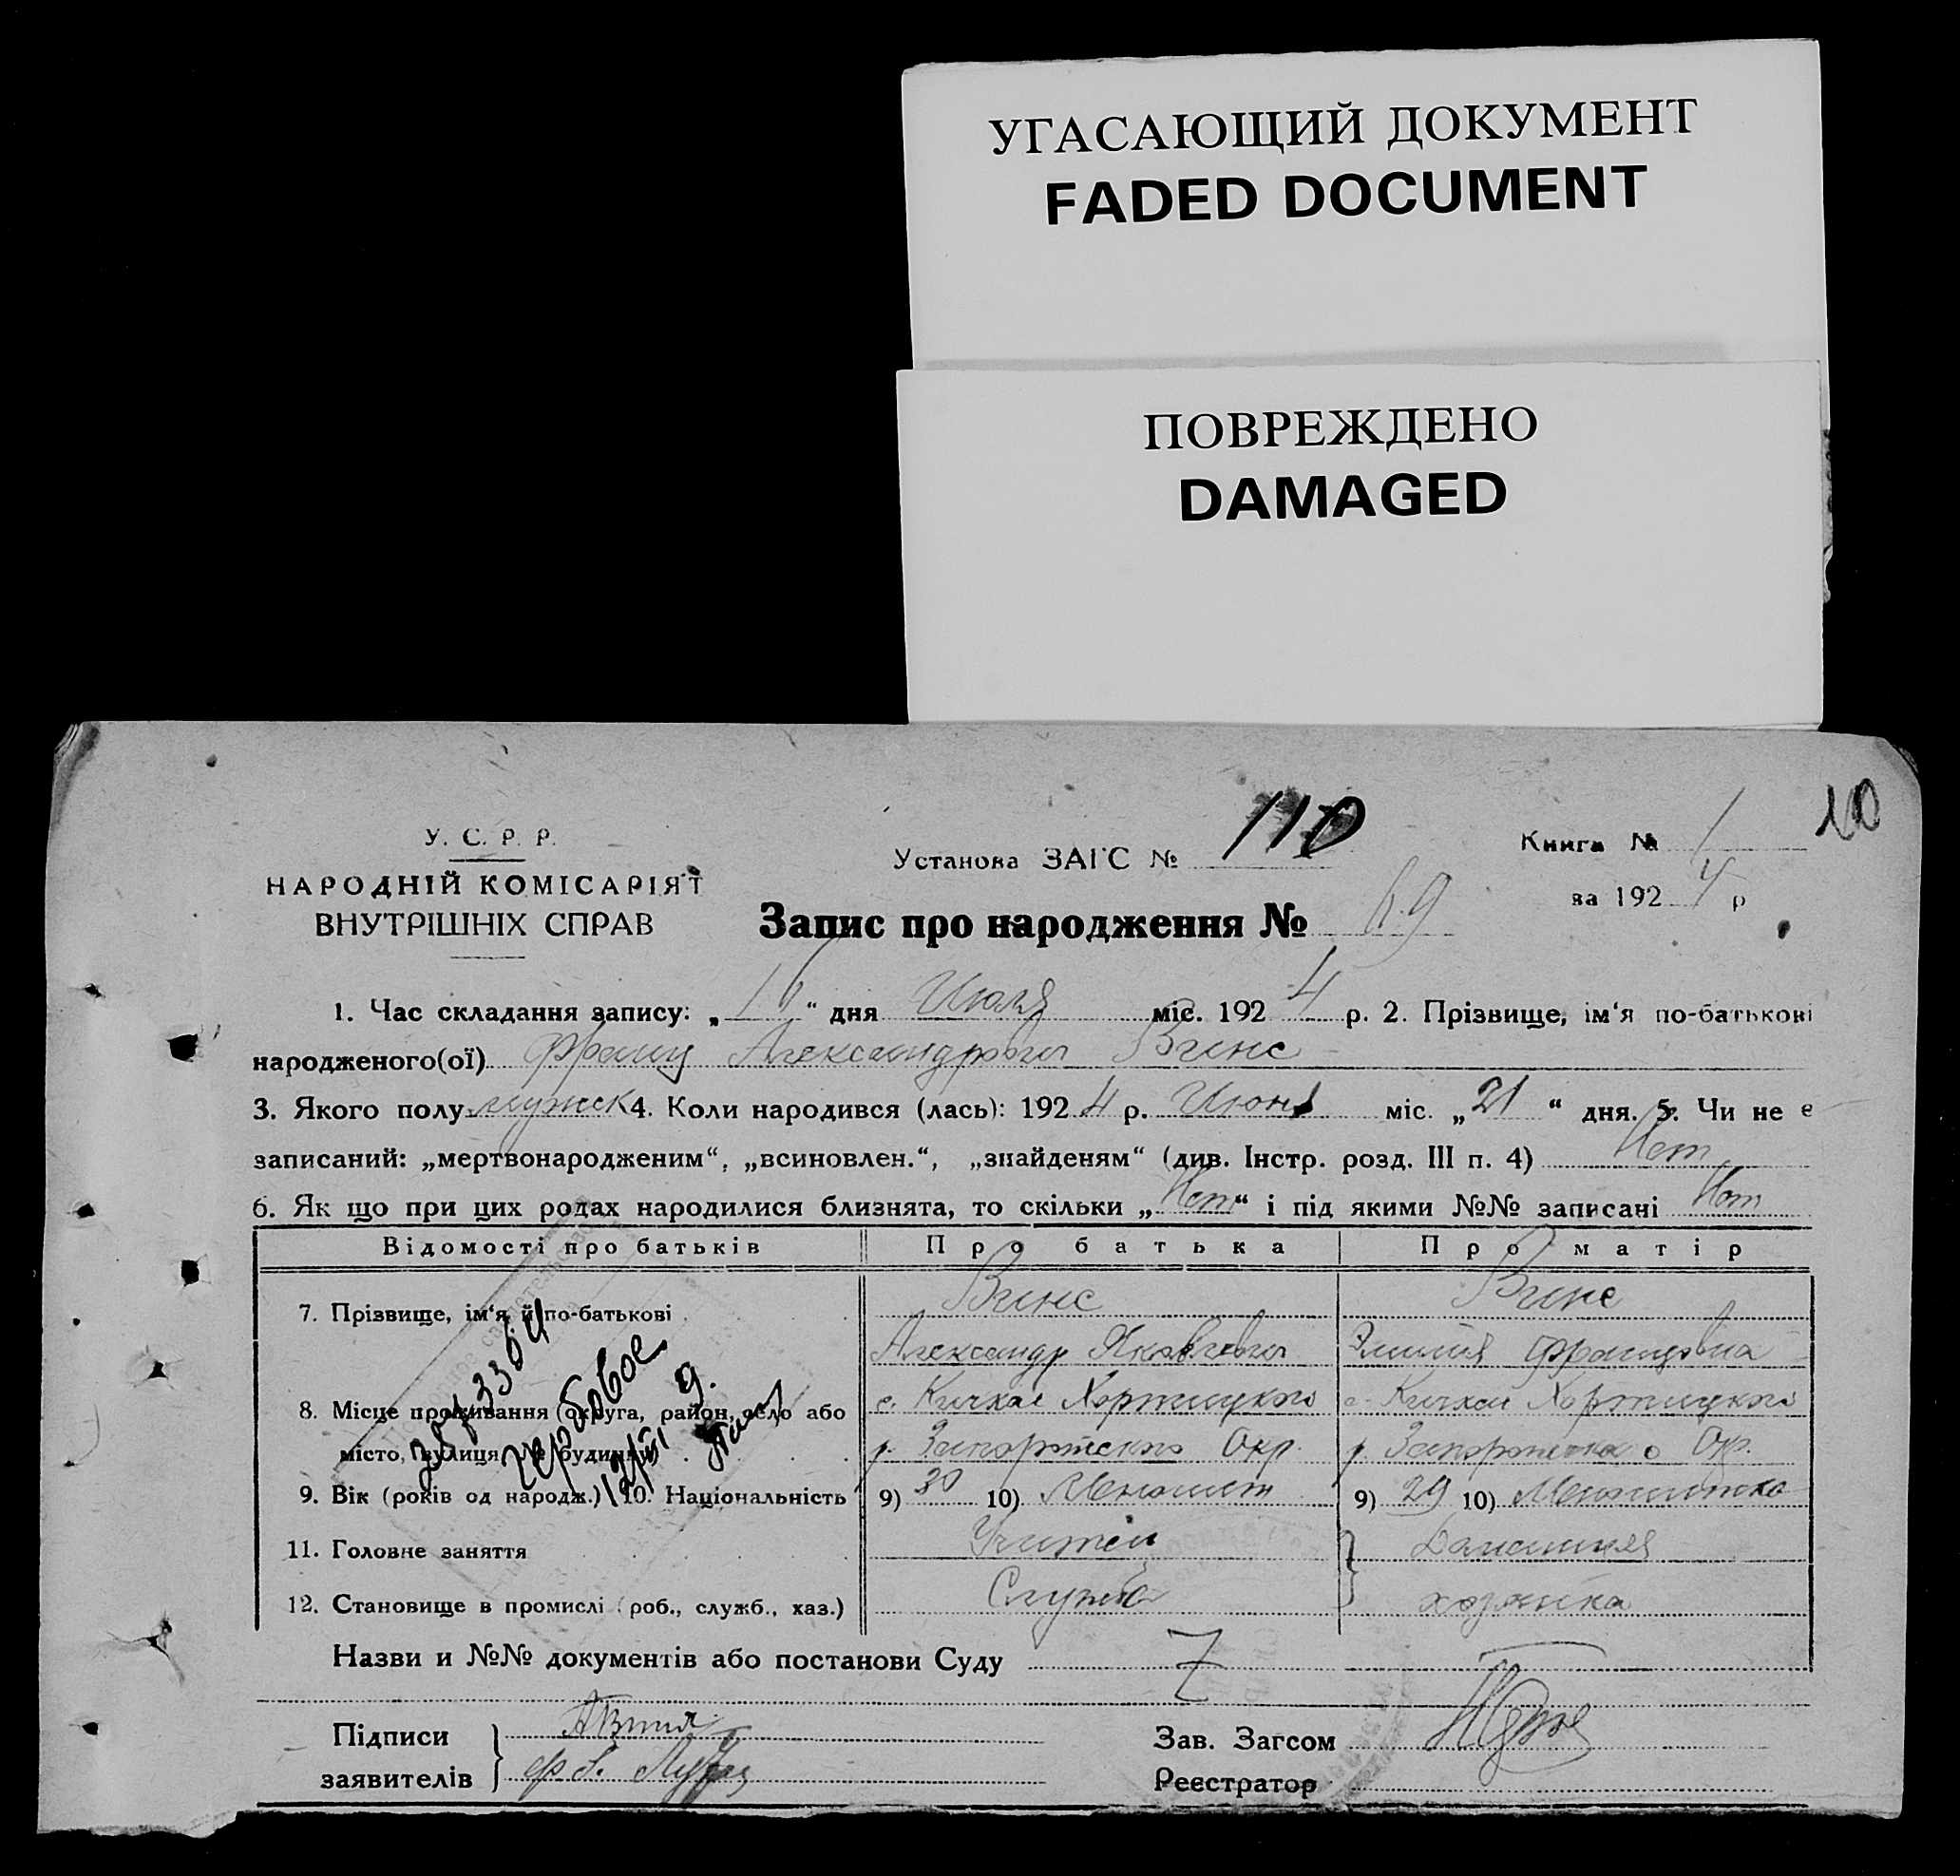 УГАСАЮЩИЙ ДОКУМЕНТ
FADED DOCUMENT
ПОВРЕЖДЕНО
DAMAGED
10
У. С. Р. Р.
НАРОДНІЙ КОМІСАРІЯТ
ВНУТРІШНІХ СПРАВ
Установа ЗАГС № 110
Книга № 1
за 192 4 р
Запис про народження № 69
1. Час складання запису: „ 16 “ дня Июля міс. 192 4 р. 2. Прізвище, ім‘я по-батькові
народженого(ої) Франц Александрович Винс
3. Якого полу мужск 4. Коли народився (лась): 192 4 р. Июня міс. „ 21 “ дня. 5. Чи не є
записаний: „мертвонародженим“, „всиновлен.“, „знайденям“ (див. Інстр. розд. III п. 4) Нет
6. Як що при цих родах народилися близнята, то скільки „ Нет “ і під якими №№ записані Нет
Відомості про батьків Про батька Про матір
7. Прізвище, ім‘я й по-батькові Винс Винс
Александр Яковлевич Эмилия Францовна
8. Місце проживання (округа, район, село або с. Кичкас Хортицкого с. Кичкас Хортицкого
місто, вулиця, № будинку) р. Запорожского Окр. р. Запорожского Окр.
9. Вік (років од народж.) 10. Національність 9) 30 10) Менонит 9) 29 10) Менонитка
11. Головне заняття Учитель Домашняя
12. Становище в промислі (роб., служб., хаз.) Служба хозяйка
гербовое
Назви и №№ документів або постанови Суду
Підписи
заявителів
Зав. Загсом
Реєстратор